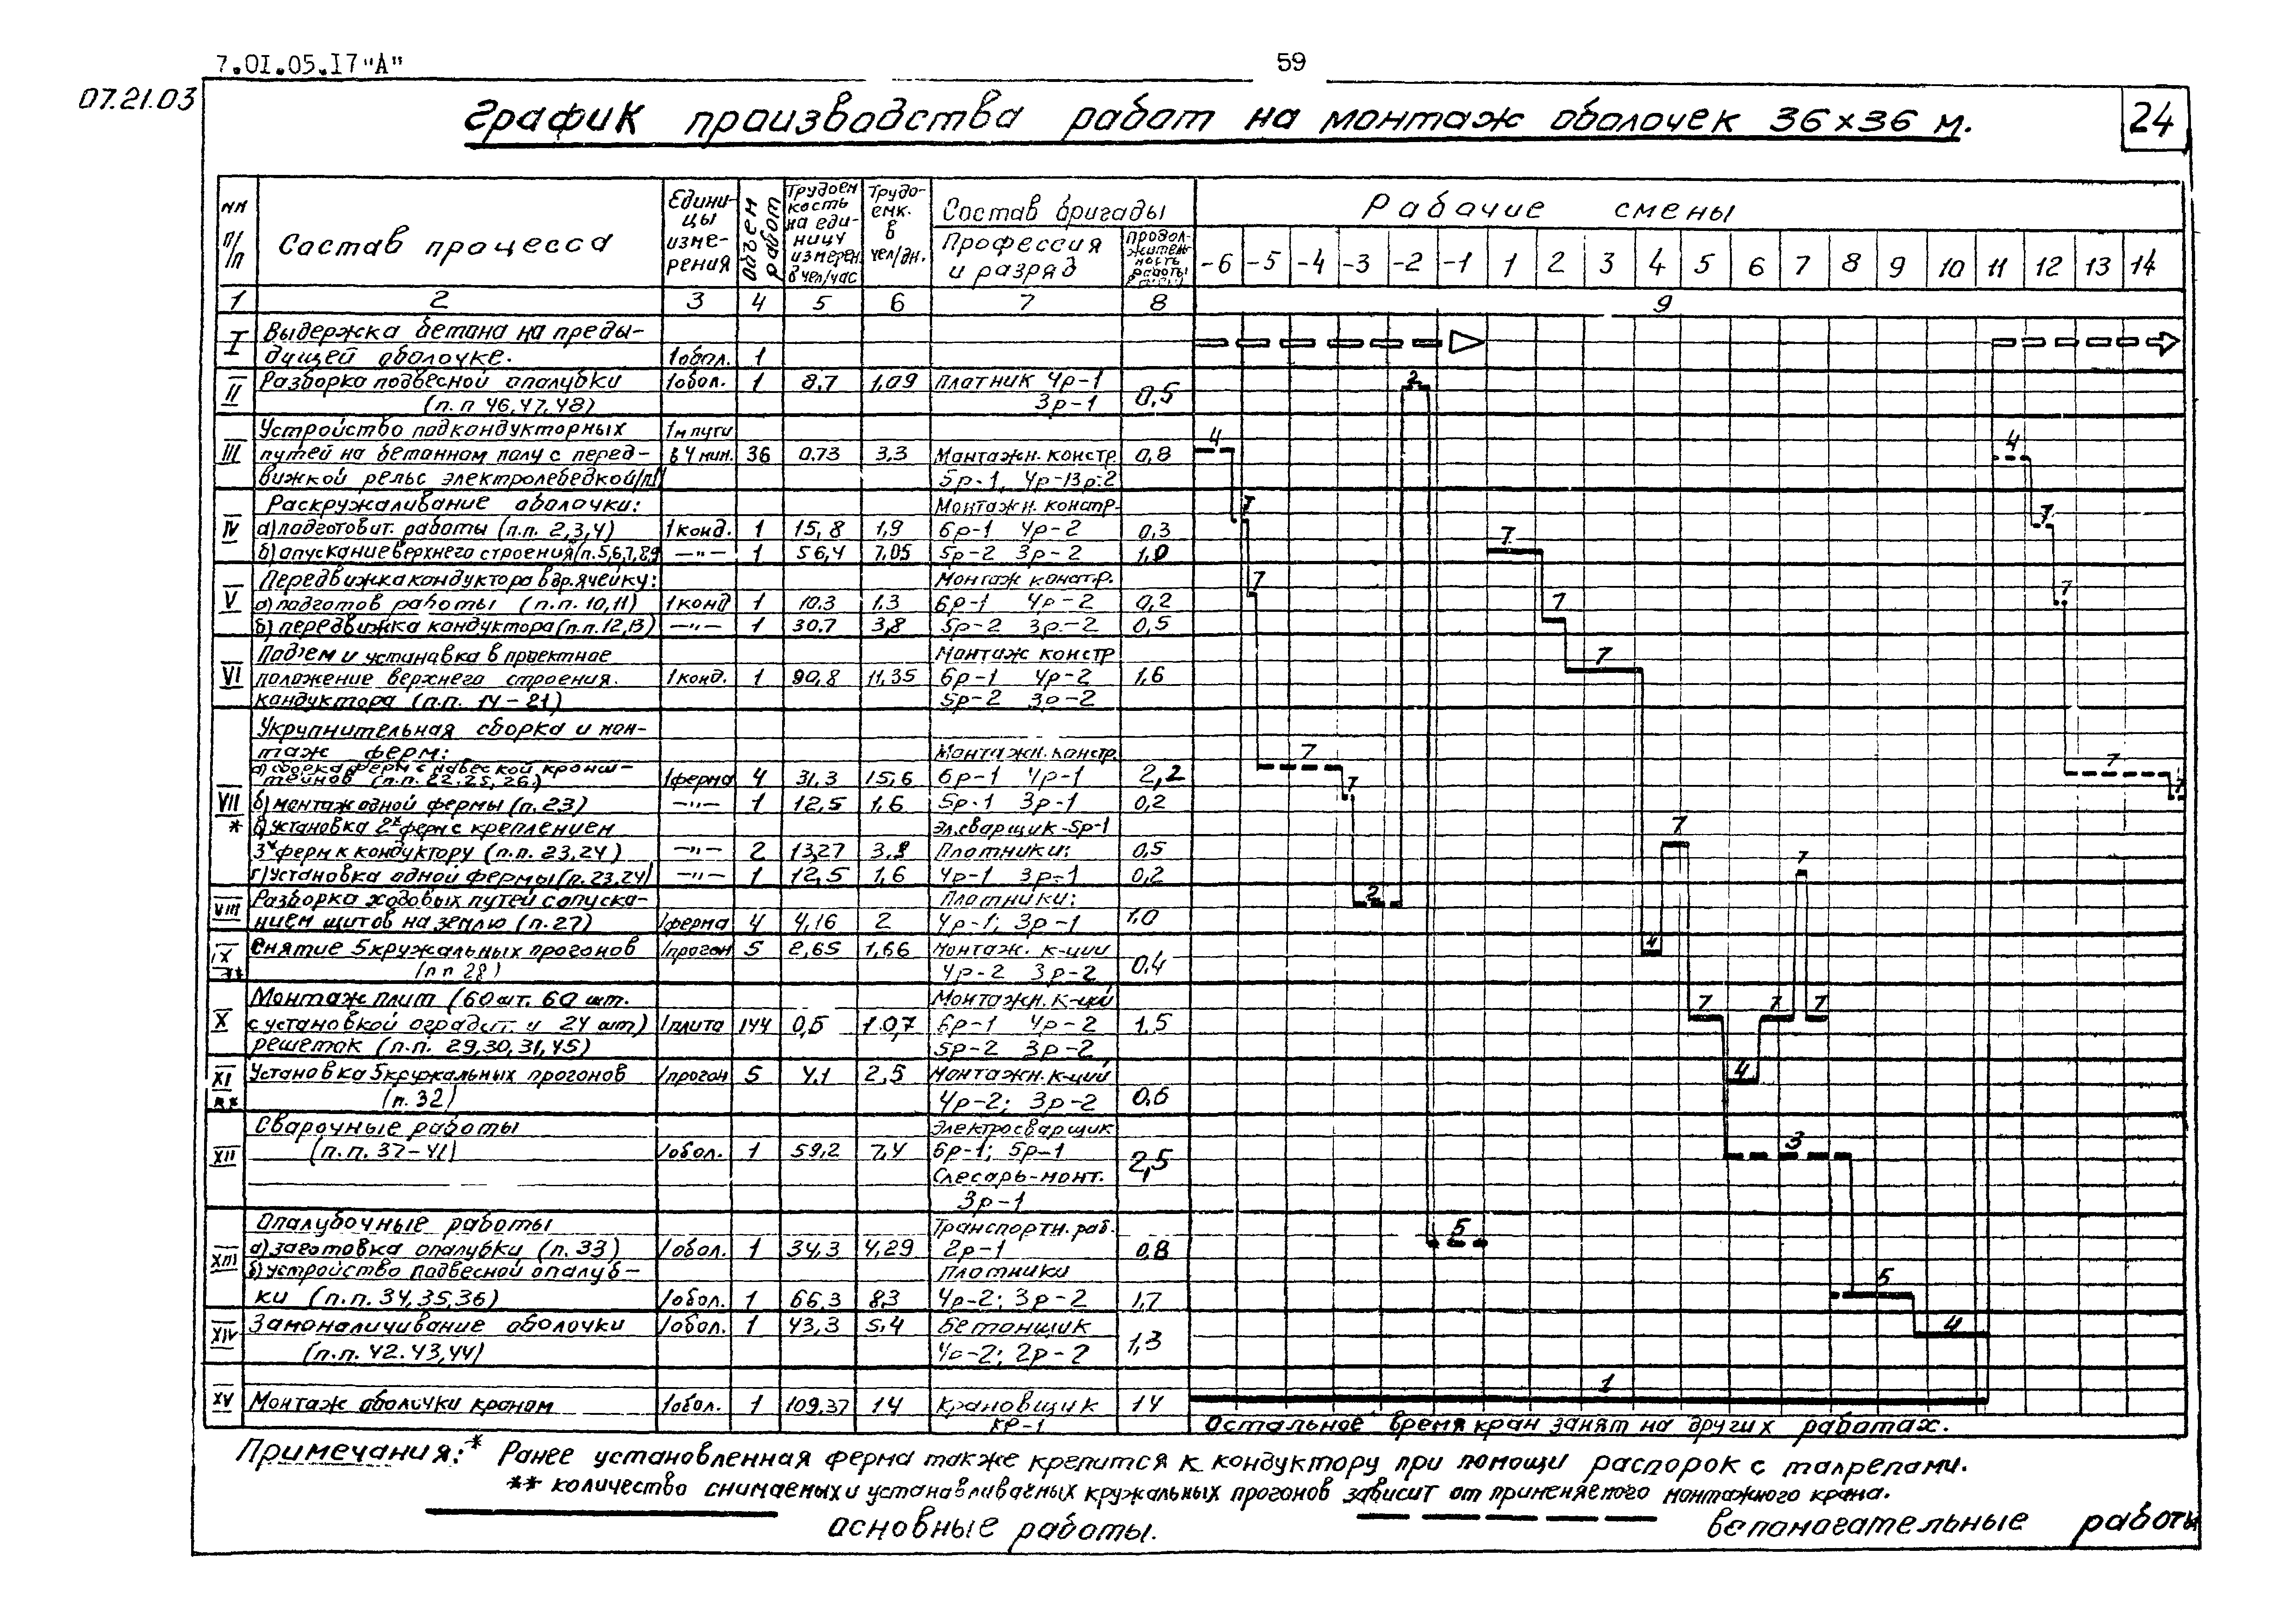 7.01.05.17"А"
59
07.21.03
График производства работ на монтаж оболочек 36×36 м.
24
NN п/п
Состав процесса
Единицы измерения
Объем работ
Трудоемкость на единицу измерен. в чел/час
Трудоемк. в чел/дн.
Состав бригады
Профессия и разряд
Продолжительность работы
Рабочие смены
-6 -5 -4 -3 -2 -1 1 2 3 4 5 6 7 8 9 10 11 12 13 14
1 2 3 4 5 6 7 8 9
I Выдержка бетона на преды-
дущей оболочке. 1 обол. 1
II Разборка подвесной опалубки 1 обол. 1 8,7 1,09 Плотник 4р-1 0,5
(п.п 46,47,48) 3р-1
2
Устройство подкондукторных 1 м пути
III путей на бетонном полу с перед- в 4 нит. 36 0.73 3,3 Монтажн. констр. 0,8
вижкой рельс электролебедкой 5р-1, 4р-1 3р-2
4 4
Раскружаливание оболочки: Монтажн. констр.
IV а) подготовит. работы (п.п. 2,3,4) 1 конд. 1 15,8 1,9 6р-1 4р-2 0,3
б) опускание верхнего строения (п. 5,6,7,8,9 —"— 1 56,4 7,05 5р-2 3р-2 1,0
7 7 7
Передвижка кондуктора в др. ячейку: Монтаж констр.
V а) подготов работы (п.п. 10,11) 1 конд 1 10.3 1.3 6р-1 4р-2 0,2
б) передвижка кондуктора (п.п. 12,13) —"— 1 30.7 3,8 5р-2 3р-2 0,5
7 7 7
Подъем и установка в проектное Монтаж констр
VI положение верхнего строения. 1 конд. 1 90,8 11,35 6р-1 4р-2 1,6
кондуктора (п.п. 14-21) 5р-2 3р-2
7
Укрупнительная сборка и мон-
таж ферм: Монтажн. констр.
а) сборка ферм с навеской кронш-
тейнов (п.п. 22.25,26) 1 ферма 4 31,3 15,6 6р-1 4р-1 2,2
VII б) монтаж одной фермы (п. 23) —"— 1 12,5 1,6 5р-1 3р-1 0,2
* в) установка 2х ферм с креплением Эл.сварщик-5р-1
3х ферм к кондуктору (п.п. 23,24) —"— 2 13,27 Плотники: 0,5
г) установка одной фермы (п. 23,24) —"— 1 12,5 1,6 4р-1 3р-1 0,2
7 7 7 7 7 7
VIII Разборка ходовых путей с опуска- Плотники:
нием щитов на землю (п. 27) 1 ферма 4 4,16 2 4р-1; 3р-1 1,0
2
IX Снятие 5 кружальных прогонов 1 прогон 5 2,65 1,66 Монтаж. к-ции
** (п.п 28) 4р-2 3р-2 0,4
4
Монтаж плит (60 шт. 60 шт. Монтажн. к-ций
X с установкой оградит. и 24 шт) 1 плита 144 0,5 6р-1 4р-2 1,5
решеток (п.п. 29,30,31,45) 5р-2 3р-2
7 7 7
XI Установка 5 кружальных прогонов 1 прогон 5 4.1 2,5 Монтажн. к-ций
** (п. 32) 4р-2; 3р-2 0.6
4
Сварочные работы Электросварщик
XII (п.п. 37-41) 1 обол. 1 59,2 7,4 6р-1; 5р-1 2,5
Слесарь-монт.
3р-1
3
Опалубочные работы Транспортн. раб.
XIII а) заготовка опалубки (п. 33) 1 обол. 1 34,3 4,29 2р-1 0,8
б) устройство подвесной опалуб- Плотники
ки (п.п. 34,35,36) 1 обол. 1 66.3 8.3 4р-2; 3р-2 1,7
5 5
XIV Замоноличивание оболочки 1 обол. 1 43,3 5.4 Бетонщик
(п.п. 42.43,44) 4р-2; 2р-2 1,3
4
XV Монтаж оболочки краном 1 обол. 1 109.37 14 Крановщик 14
1
Остальное время кран занят на других работах.
Примечания: * Ранее установленная ферма также крепится к кондуктору при помощи распорок с талрепами.
** количество снимаемых и устанавливаемых кружальных прогонов зависит от применяемого монтажного крана.
основные работы. вспомогательные работы